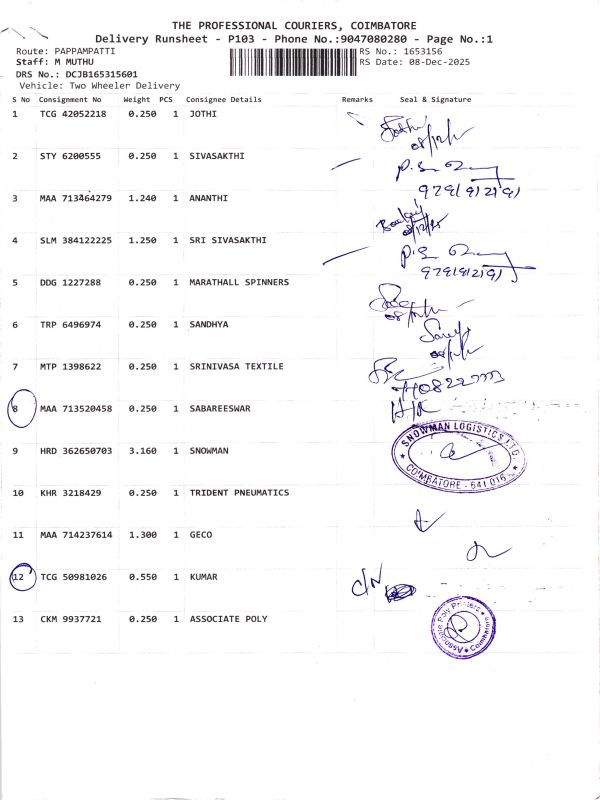 THE PROFESSIONAL COURIERS, COIMBATORE
Delivery Runsheet - P103 - Phone No.:9047080280 - Page No.:1
Route: PAPPAMPATTI RS No.: 1653156
Staff: M MUTHU RS Date: 08-Dec-2025
DRS No.: DCJB165315601
Vehicle: Two Wheeler Delivery
S No Consignment No Weight PCS Consignee Details Remarks Seal & Signature
1 TCG 42052218 0.250 1 JOTHI
2 STY 6200555 0.250 1 SIVASAKTHI
3 MAA 713464279 1.240 1 ANANTHI
4 SLM 384122225 1.250 1 SRI SIVASAKTHI
5 DDG 1227288 0.250 1 MARATHALL SPINNERS
6 TRP 6496974 0.250 1 SANDHYA
7 MTP 1398622 0.250 1 SRINIVASA TEXTILE
8 MAA 713520458 0.250 1 SABAREESWAR
9 HRD 362650703 3.160 1 SNOWMAN
SNOWMAN LOGISTICS LTD.
COIMBATORE - 641 016
10 KHR 3218429 0.250 1 TRIDENT PNEUMATICS
11 MAA 714237614 1.300 1 GECO
12 TCG 50981026 0.550 1 KUMAR
13 CKM 9937721 0.250 1 ASSOCIATE POLY
Associate Poly Printers Coimbatore